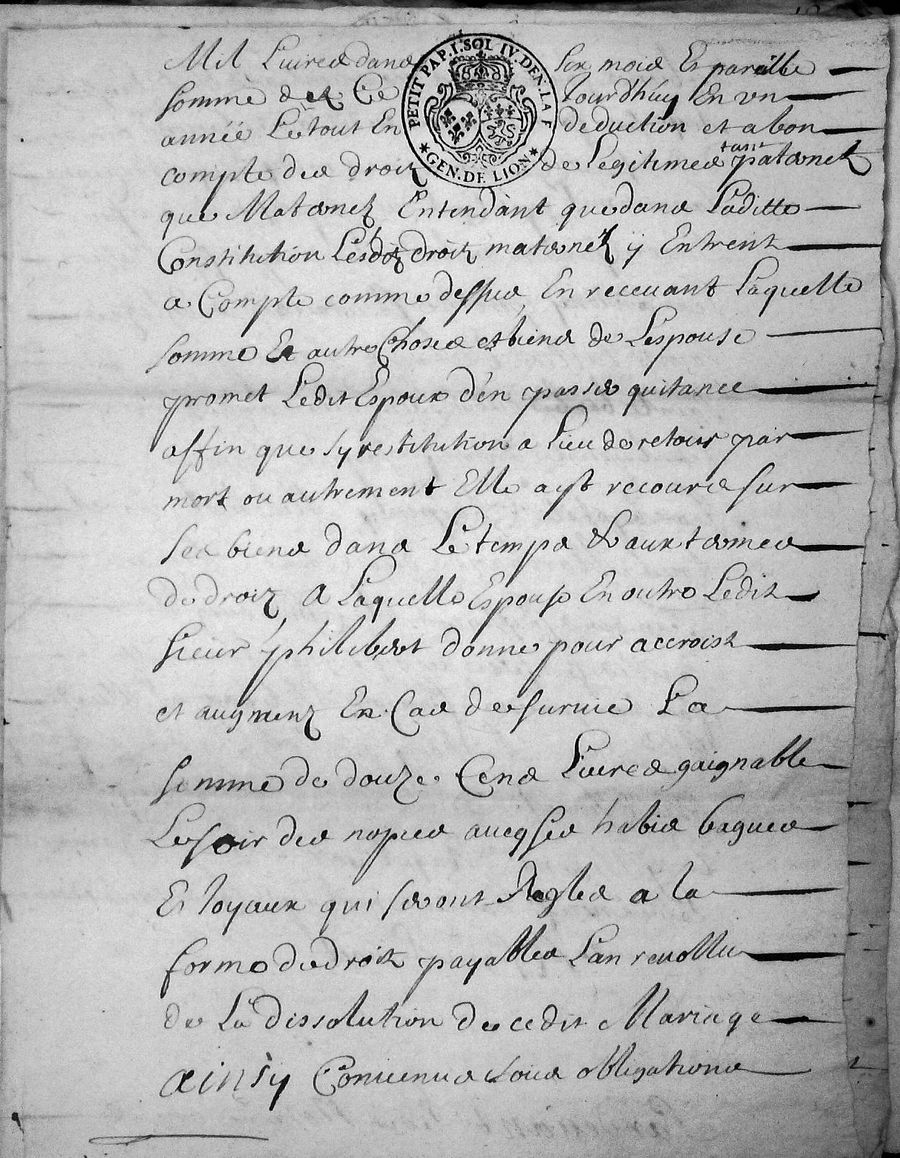 PETIT PAP. I. SOL IV. DEN. LA F
★ GEN. DE LION ★
Mil Livres dans Six mois Et pareille
Somme de Ce Jourdhuy En un
année Le tout En deduction et a bon
compte des droitz de Legitimes tant paternelz
que Maternelz Entendant que dans Laditte
Constitution Lesdtz droitz maternelz y Entrent
a Compte comme dessus En recevant Laquelle
somme Et autre Choses et biens de Lespouse
promet Ledit Espoux d'en passer quitance
affin que sy restitution a Lieu de retour par
mort ou autrement Elle ayt recours sur
Ses biens dans Le temps & aux termes
de droit A Laquelle Espouse En outre Ledit
Sieur philibert donne pour accroist
et augment En Cas de survie La
Somme de douze Cens Livres gaignable
Le soir des nopces avecq ses habis bagues
Et Joyaux qui seront Reglés a la
forme de droit payables L'an revollu
de La dissolution de cedit Mariage
ainsy Convenus sous obligations